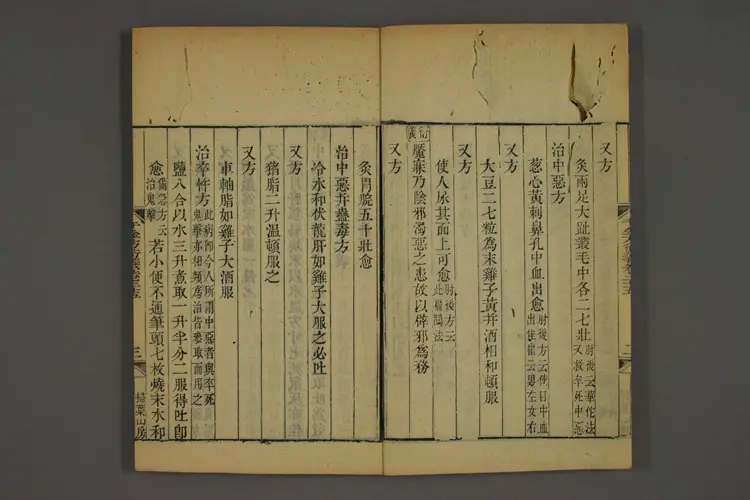 又方
灸兩足大趾叢毛中各二七壯肘後云華佗法又救卒死中惡
治中惡方
葱心黃刺鼻孔中血出愈肘後方云使目中血出佳崔云男左女右
又方
大豆二七粒為末雞子黃并酒相和頓服
又方
使人尿其面上可愈肘後方云此扁鵲法
衍義魘寐乃陰邪濁惡之患故以辟邪為務
又方
灸胃脘五十壯愈
治中惡并蠱毒方
冷水和伏龍肝如雞子大服之必吐
又方
豬脂二升溫頓服之
又方
車軸脂如雞子大酒服
治卒忤方此病即今人所謂中惡者與卒死鬼擊亦相類為治皆參取而用之
鹽八合以水三升煮取一升半分二服得吐即
愈備急方云治鬼擊若小便不通筆頭七枚燒末水和
千金方衍義卷二十五
三
掃葉山房